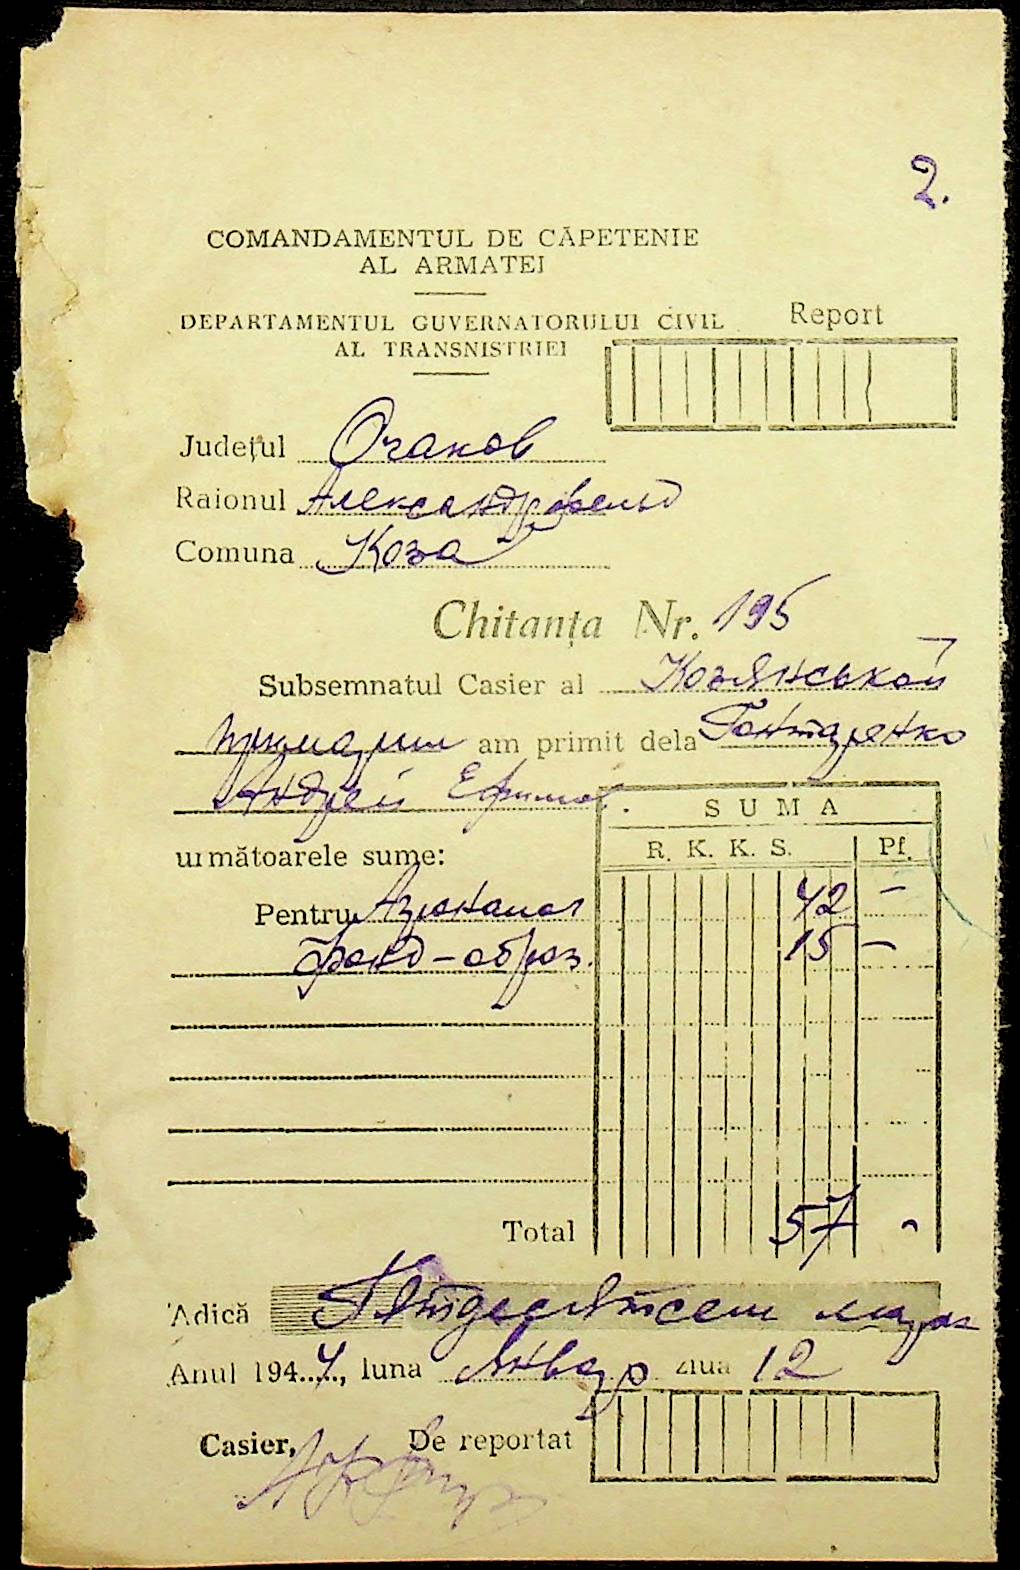 2.
COMANDAMENTUL DE CĂPETENIE
AL ARMATEI
DEPARTAMENTUL GUVERNATORULUI CIVIL
AL TRANSNISTRIEI
Report
Județul Очаков
Raionul Александрфельд
Comuna Коза
Chitanța Nr. 195
Subsemnatul Casier al Козянськой
примарии am primit dela Гонтаренко
Андрей Ефимов.
următoarele sume:
SUMA
R. K. K. S. Pf.
Pentru 42 –
фонд – образ. 15 –
Total 57 -
Adică Пятдесятсем марок
Anul 1944, luna Январ ziua 12
Casier, De reportat